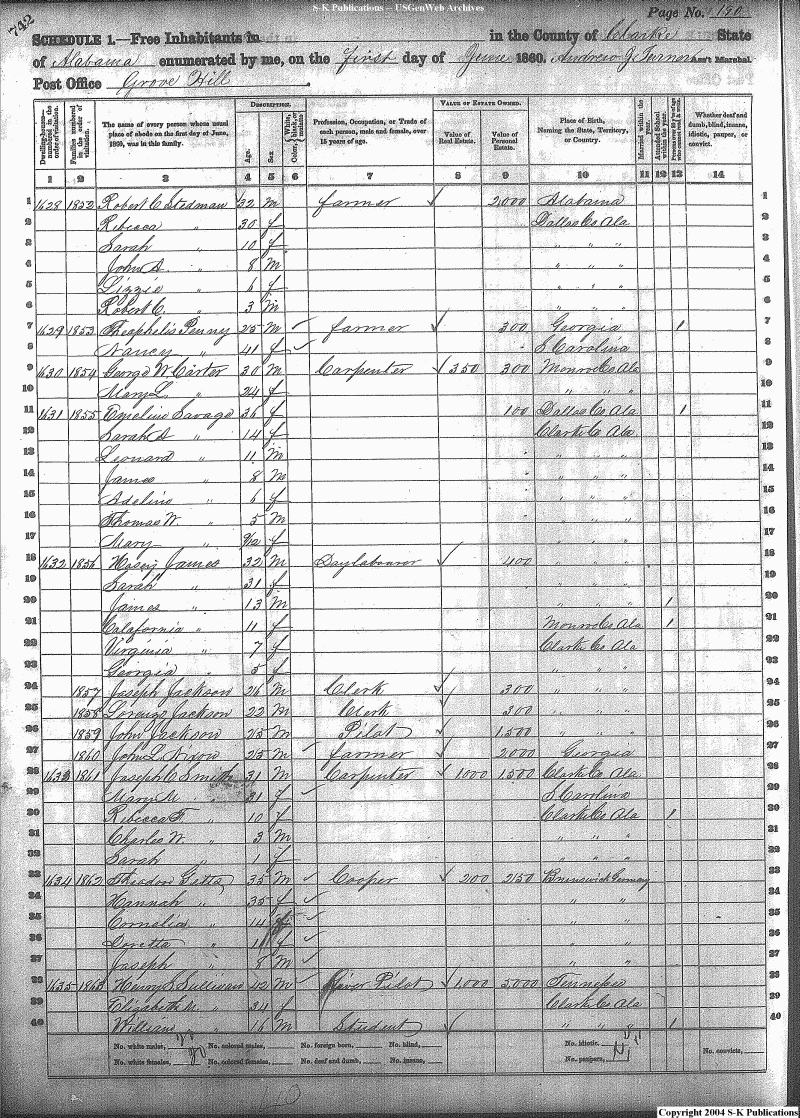 S-K Publications -- USGenWeb Archives
742
Page No. 190
SCHEDULE 1.—Free Inhabitants in in the County of Clarke State
of Alabama enumerated by me, on the First day of June 1860. Andrew J. Ass't Marshal
Post Office Grove Hill
Dwelling-houses— numbered in the order of visitation.
Families numbered in the order of visitation.
The name of every person whose usual place of abode on the first day of June, 1860, was in this family.
DESCRIPTION.
Age.
Sex
Color, White, black, or mulatto
Profession, Occupation, or Trade of each person, male and female, over 15 years of age.
VALUE OF ESTATE OWNED.
Value of Real Estate.
Value of Personal Estate.
Place of Birth, Naming the State, Territory, or Country.
Married within the year.
Attended School within the year.
Whether deaf and dumb, blind, insane, idiotic, pauper, or convict.
1 2 3 4 5 6 7 8 9 10 11 12 13 14
1 1628 1852 Robert C. Stedman 32 m farmer 2,000 Alabama 1
2 Rebecca " 30 f Dallas Co Ala 2
3 Sarah " 10 f " " " 3
4 John A. " 8 m " " " 4
5 Lizzie " 6 f " " " 5
6 Robert C. " 3 m " " " 6
7 1629 1853 Theophelis Penny 25 m farmer 300 Georgia 1 7
8 Nancy " 41 f S Carolina 8
9 1630 1854 George W Carter 30 m Carpenter 350 300 Monroe Co Ala 9
10 Mary L. " 24 f " " " 10
11 1631 1855 Savage 36 f 100 Dallas Co Ala 1 11
12 Sarah A " 14 f Clarke Co Ala 12
13 Leonard " 11 m " " " 13
14 James " 8 m " " " 14
15 Adeline " 6 f " " " 15
16 Thomas W. " 5 m " " " 16
17 Mary " f " " " 17
18 1632 1856 James 32 m Day labourer 400 " " " 18
19 Sarah " 31 f " " " 19
20 James " 13 m " " " 1 20
21 California " 11 f Monroe Co Ala 1 21
22 Virginia " 7 f Clarke Co Ala 22
23 Georgia " 5 f " " " 23
24 1857 Joseph Jackson 26 m Clerk 300 " " " 24
25 1858 Lorenzo Jackson 22 m Clerk 300 " " " 25
26 1859 John Jackson 25 m Pilot 1,500 " " " 26
27 1860 John L. Dixon 25 m farmer 2,000 Georgia 27
28 1633 1861 Joseph C Smith 31 m Carpenter 1000 1,500 Clarke Co Ala 28
29 Mary M " 31 f S Carolina 29
30 Rebecca F. " 10 f Clarke Co Ala 1 30
31 Charles W. " 3 m " " " 31
32 Sarah " 1 f " " " 32
33 1634 1862 Theodor 35 m Cooper 200 250 Brunswick Germany 33
34 Hannah " 35 f " " 34
35 Cornelia " 14 f " " 35
36 Doretta " 11 f " " 36
37 Joseph " 8 m " " 37
38 1635 1863 Henry S. Sullivan 42 m River Pilot 1,000 5,000 Tennessee 38
39 Elizabeth M. " 34 f Clarke Co Ala 39
40 William " 16 m Student " " " 1 40
No. white males, No. colored males, No. foreign born, No. blind, No. idiotic, No. convicts,
No. white females, No. colored females, No. deaf and dumb, No. insane, No. paupers,
Copyright 2004 S-K Publications